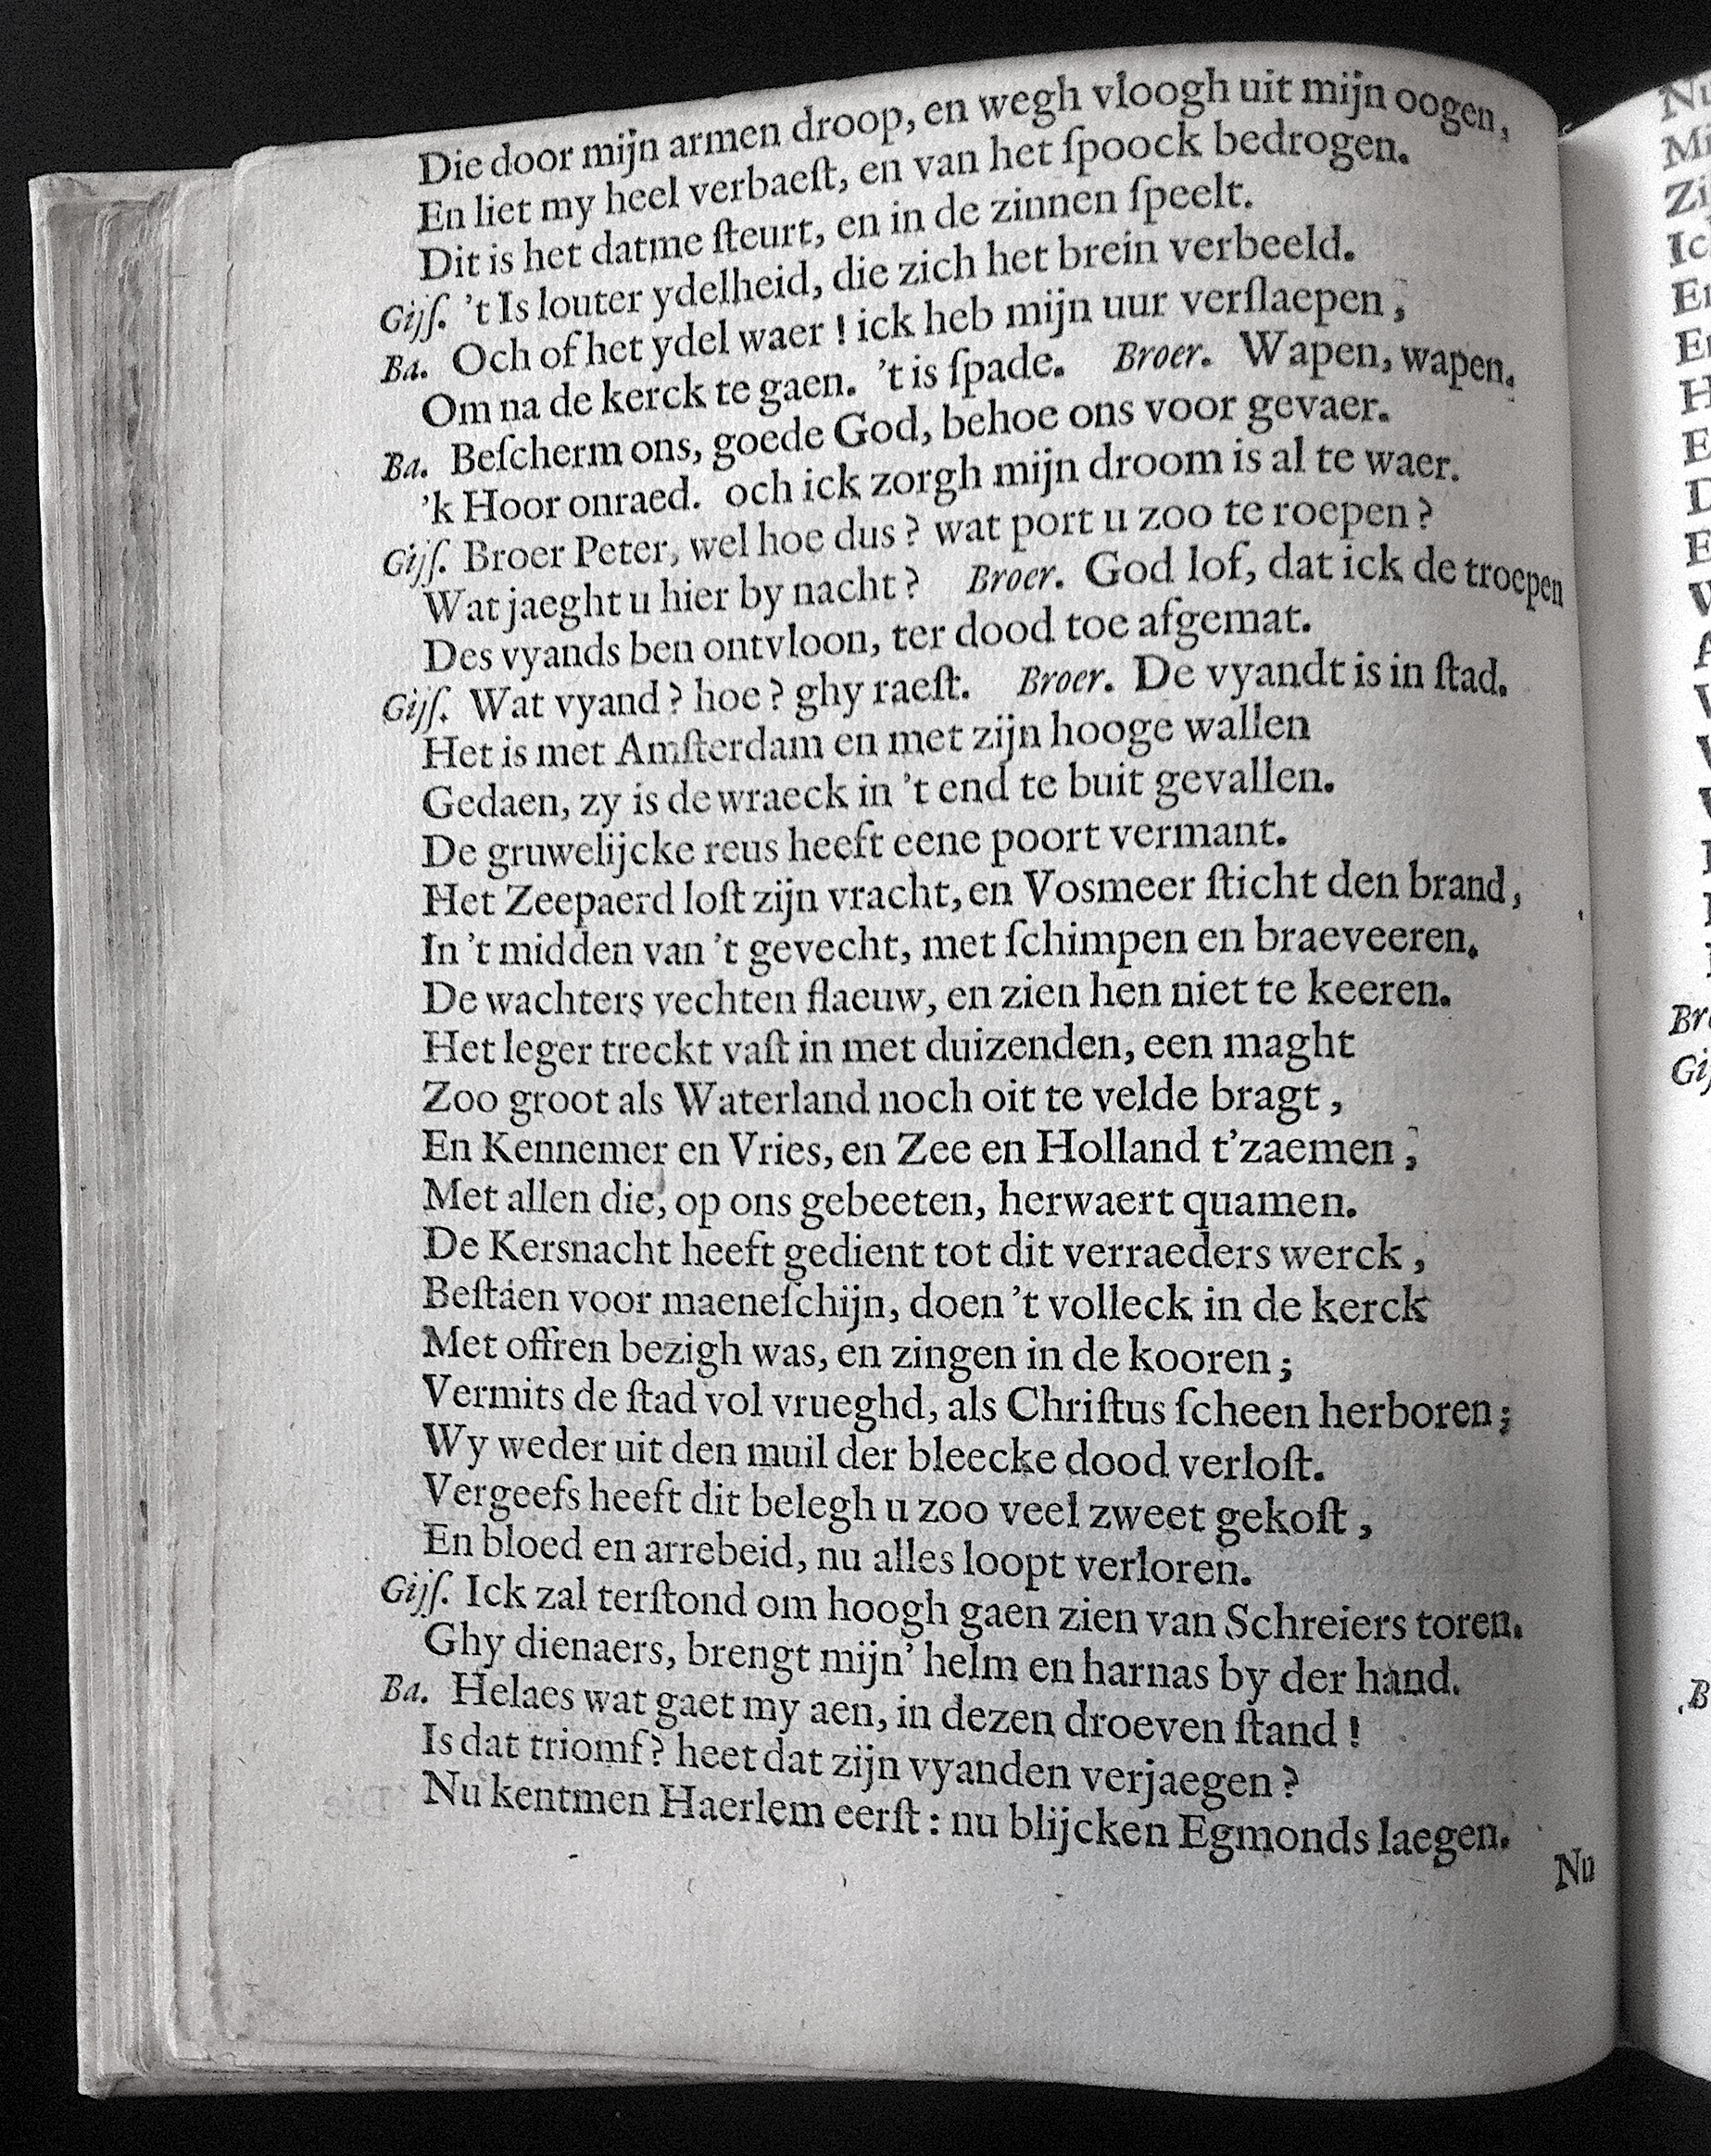 Die door mijn armen droop, en wegh vloogh uit mijn oogen,
En liet my heel verbaeſt, en van het ſpoock bedrogen.
Dit is het datme ſteurt, en in de zinnen ſpeelt.
Gijſ. 't Is louter ydelheid, die zich het brein verbeeld.
Ba. Och of het ydel waer ! ick heb mijn uur verſlaepen,
Om na de kerck te gaen. 't is ſpade. Broer. Wapen, wapen.
Ba. Beſcherm ons, goede God, behoe ons voor gevaer.
'k Hoor onraed. och ick zorgh mijn droom is al te waer.
Gijſ. Broer Peter, wel hoe dus ? wat port u zoo te roepen ?
Wat jaeght u hier by nacht ? Broer. God lof, dat ick de troepen
Des vyands ben ontvloon, ter dood toe afgemat.
Gijſ. Wat vyand ? hoe ? ghy raeſt. Broer. De vyandt is in ſtad.
Het is met Amſterdam en met zijn hooge wallen
Gedaen, zy is de wraeck in 't end te buit gevallen.
De gruwelijcke reus heeft eene poort vermant.
Het Zeepaerd loſt zijn vracht, en Vosmeer ſticht den brand,
In 't midden van 't gevecht, met ſchimpen en braeveeren.
De wachters vechten flaeuw, en zien hen niet te keeren.
Het leger treckt vaſt in met duizenden, een maght
Zoo groot als Waterland noch oit te velde bragt,
En Kennemer en Vries, en Zee en Holland t'zaemen,
Met allen die, op ons gebeeten, herwaert quamen.
De Kersnacht heeft gedient tot dit verraeders werck,
Beſtaen voor maeneſchijn, doen 't volleck in de kerck
Met offren bezigh was, en zingen in de kooren;
Vermits de ſtad vol vrueghd, als Chriſtus ſcheen herboren;
Wy weder uit den muil der bleecke dood verloſt.
Vergeefs heeft dit belegh u zoo veel zweet gekoſt,
En bloed en arrebeid, nu alles loopt verloren.
Gijſ. Ick zal terſtond om hoogh gaen zien van Schreiers toren.
Ghy dienaers, brengt mijn' helm en harnas by der hand.
Ba. Helaes wat gaet my aen, in dezen droeven ſtand !
Is dat triomf ? heet dat zijn vyanden verjaegen ?
Nu kentmen Haerlem eerſt : nu blijcken Egmonds laegen.
Nu